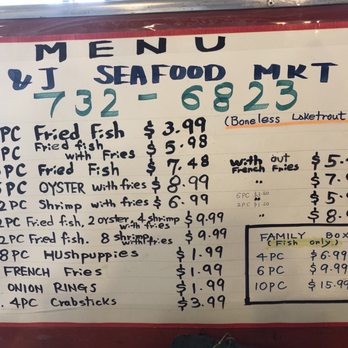 MENU
& J SEAFOOD MKT
732-6823
(Boneless Laketrout
PC Fried Fish $3.99
PC Fried fish with Fries $5.98
PC Fried Fish $7.48
PC OYSTER with fries $8.99
2PC Shrimp with fries $6.99
2PC Fried fish, 2 oyster, 4 shrimp with fries $9.99
2PC Fried fish. 8 shrimp with fries $9.99
8PC Hushpuppies $1.99
FRENCH Fries $1.99
ONION RINGS $1.99
4PC Crabsticks $3.99
with out French Fries $5.
" $7.
" $5.
" $8.
FAMILY BOX
(Fish only)
4PC $6.99
6PC $9.99
10PC $15.99